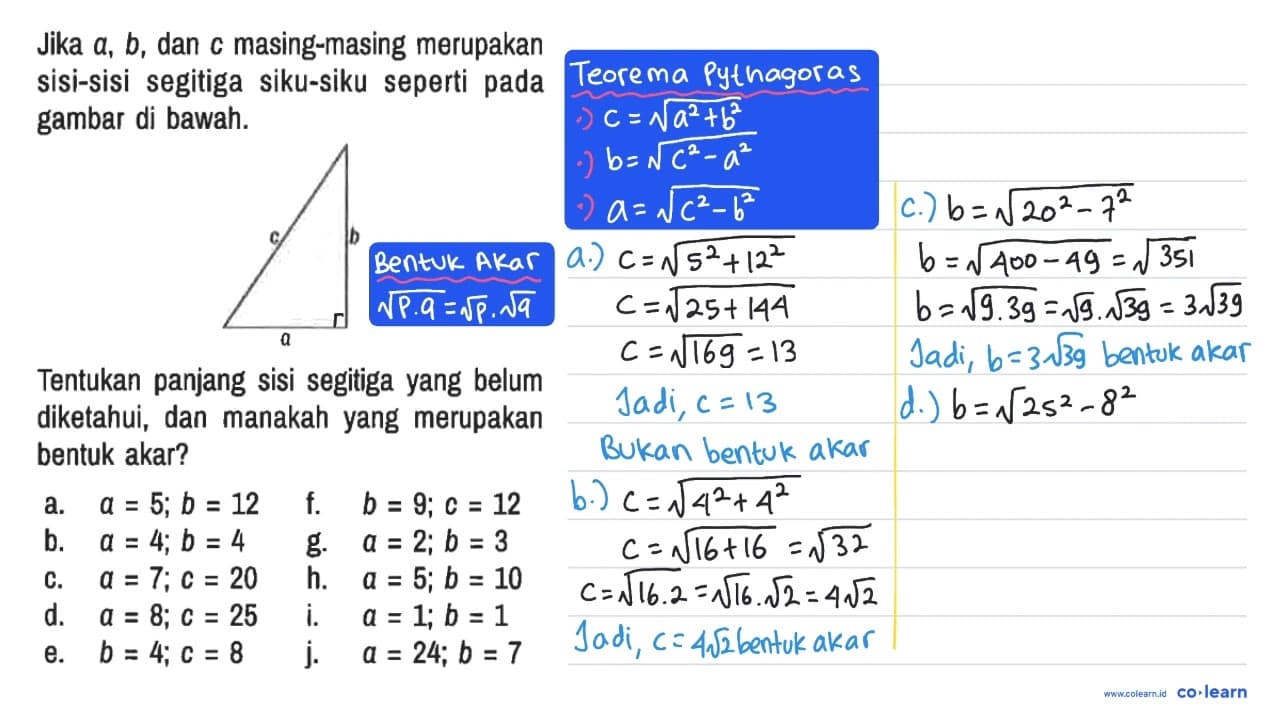 Jika a, b, dan c masing-masing merupakan
sisi-sisi segitiga siku-siku seperti pada
gambar di bawah.
c
b
a
Bentuk Akar
√p.q = √p . √q
Tentukan panjang sisi segitiga yang belum
diketahui, dan manakah yang merupakan
bentuk akar?
a. a = 5; b = 12
b. a = 4; b = 4
c. a = 7; c = 20
d. a = 8; c = 25
e. b = 4; c = 8
f. b = 9; c = 12
g. a = 2; b = 3
h. a = 5; b = 10
i. a = 1; b = 1
j. a = 24; b = 7
Teorema Pythagoras
·) c = √a²+b²
·) b = √c²-a²
·) a = √c²-b²
a.) c = √5²+12²
c = √25+144
c = √169 = 13
Jadi, c = 13
Bukan bentuk akar
b.) c = √4²+4²
c = √16+16 = √32
c = √16.2 = √16.√2 = 4√2
Jadi, c = 4√2 bentuk akar
c.) b = √20²-7²
b = √400-49 = √351
b = √9.39 = √9.√39 = 3√39
Jadi, b = 3√39 bentuk akar
d.) b = √25²-8²
www.colearn.id co·learn